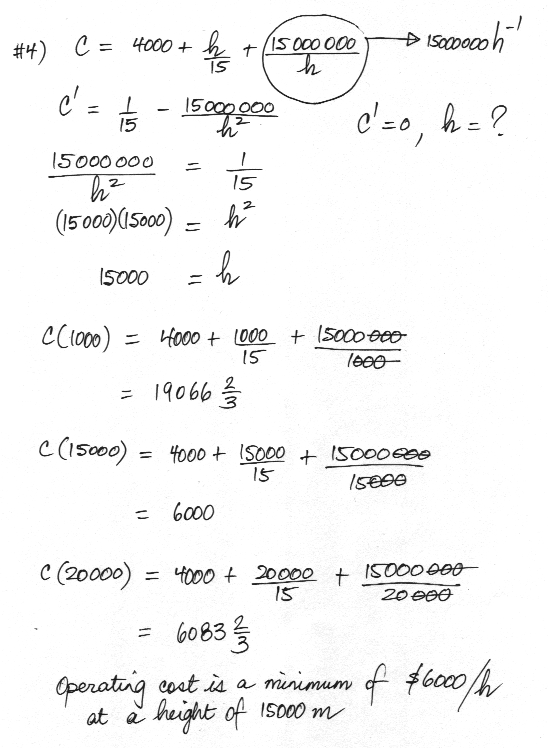 #4) C = 4000 + h/15 + 15000000/h → 15000000h⁻¹
C' = 1/15 - 15000000/h²
C'=0, h=?
15000000/h² = 1/15
(15000)(15000) = h²
15000 = h
C(1000) = 4000 + 1000/15 + 15000000/1000
= 19066 2/3
C(15000) = 4000 + 15000/15 + 15000000/15000
= 6000
C(20000) = 4000 + 20000/15 + 15000000/20000
= 6083 2/3
Operating cost is a minimum of $6000/h
at a height of 15000 m